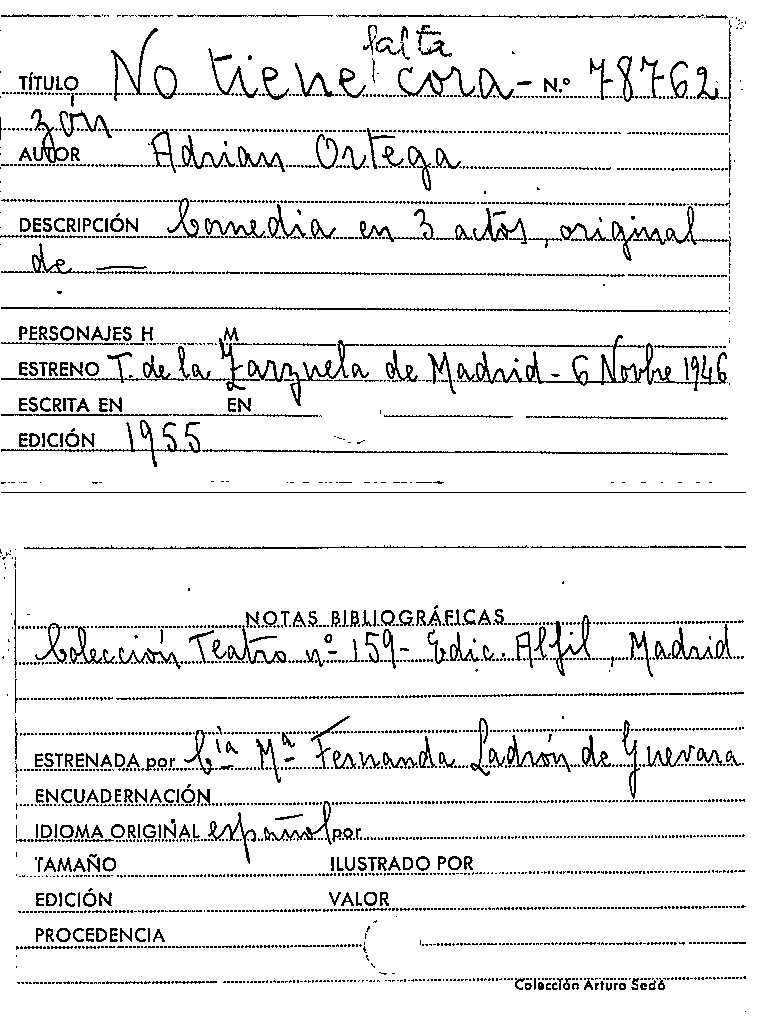 falta
TÍTULO No tiene cora- N.º 78762
zón
AUTOR Adrian Ortega
DESCRIPCIÓN Comedia en 3 actos, original
de —
PERSONAJES H M
ESTRENO T. de la Zarzuela de Madrid - 6 Novbre 1946
ESCRITA EN EN
EDICIÓN 1955
NOTAS BIBLIOGRÁFICAS
Colección Teatro nº 159 - Edic. Alfil, Madrid
ESTRENADA por Cía Mª Fernanda Ladrón de Guevara
ENCUADERNACIÓN
IDIOMA ORIGINAL español por
TAMAÑO ILUSTRADO POR
EDICIÓN VALOR
PROCEDENCIA
Colección Arturo Sedó